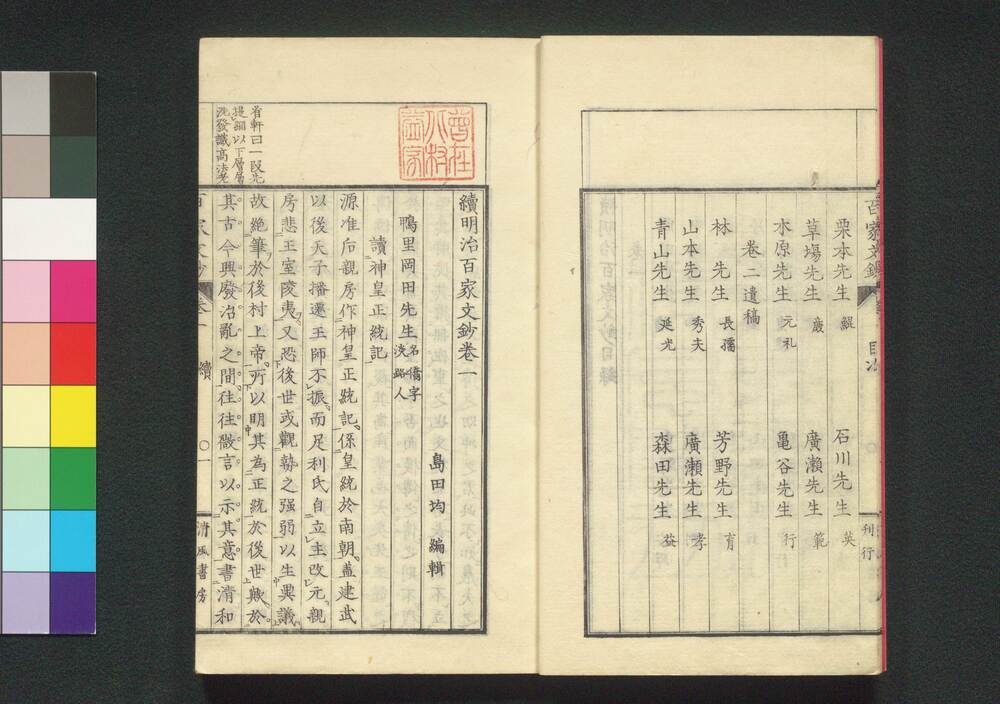 栗本先生 鯤 石川先生 英
草場先生 廉 廣瀨先生 範
水原先生 元礼 亀谷先生 行
卷二遺稿
林先生 長孺 芳野先生 育
山本先生 秀夫 廣瀨先生 孝
青山先生 延光 森田先生 益
刊行
續明治百家文鈔卷一
島田均 編輯
鴨里岡田先生 名僑字
淡路人
讀神皇正統記
源准后親房作神皇正統記係皇統於南朝蓋建武
以後天子播遷王師不振而足利氏自立主改元親
房悲王室陵夷又恐後世或觀勢之强弱以生異議
故絕筆於後村上帝所以明其為正統於後世歟於
其古今興廢治亂之間往往微言以示其意書清和
省軒曰一段先
提綱以下層層
洗發識高法老
百家文鈔 卷一 續 〇一 清風書房